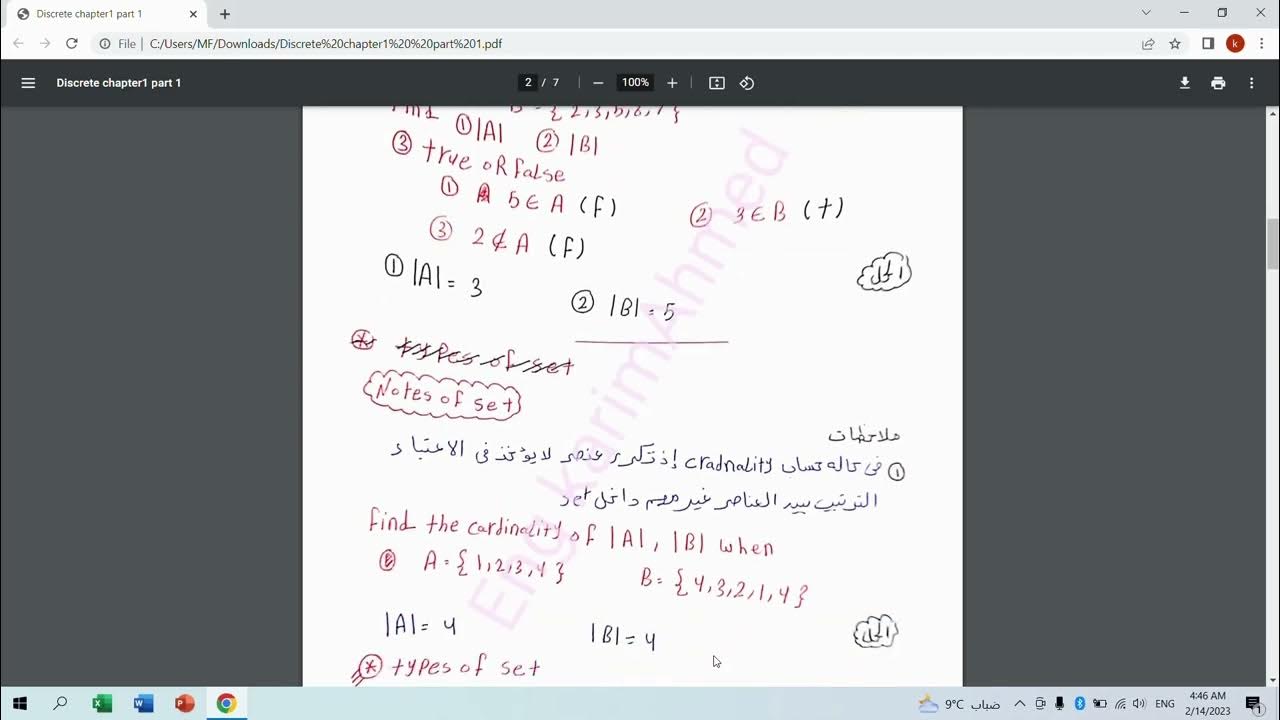 Discrete chapter1 part 1
File | C:/Users/MF/Downloads/Discrete%20chapter1%20%20part%201.pdf
k
Discrete chapter1 part 1
2 / 7
100%
Find B = { 2,3,5,6,7 }
① |A| ② |B|
③ true OR false
① 5 ∈ A (f) ② 3 ∈ B (t)
③ 2 ∉ A (f)
الحل
① |A| = 3
② |B| = 5
* types of set
Notes of set
ملاحظات
① في حاله حساب cradnality إذ تكرر عنصر لا يؤخذ في الاعتبار
الترتيب بين العناصر غير مهم داخل set
Find the cardinality of |A|, |B| when
A = { 1,2,3,4 } B = { 4,3,2,1,4 }
الحل
|A| = 4 |B| = 4
* types of set
Eng karim Ahmed
9°C ضباب
ENG
4:46 AM
2/14/2023
1